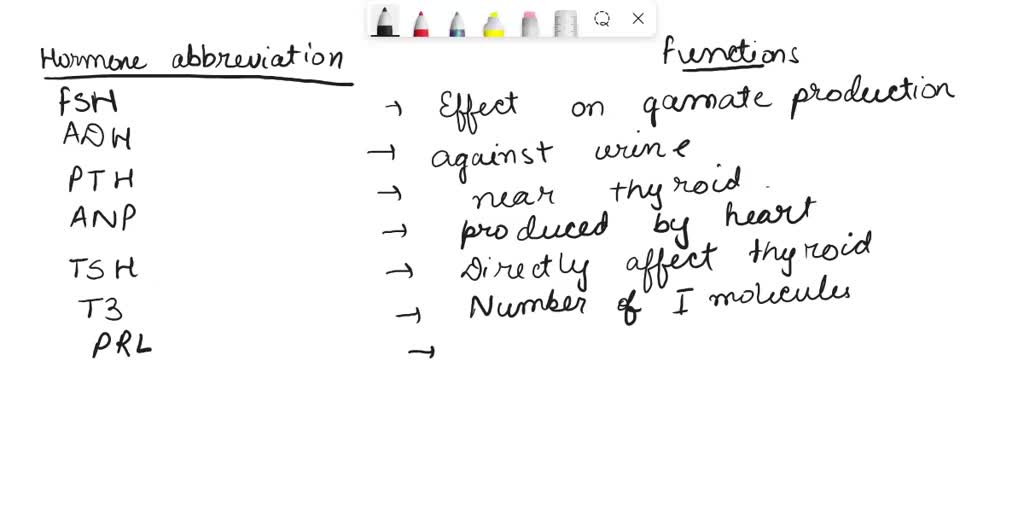 Hormone abbreviation functions
FSH → Effect on gamate production
ADH → against urine
PTH → near thyroid
ANP → produced by heart
TSH → Directly affect thyroid
T3 → Number of I molecules
PRL →